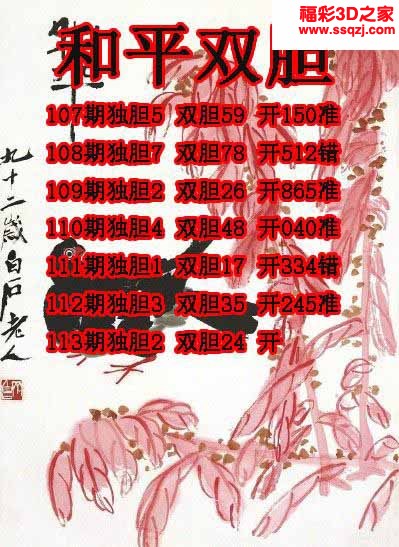 福彩3D之家
www.ssqzj.com
和平双胆
107期独胆5 双胆59 开150准
108期独胆7 双胆78 开512错
109期独胆2 双胆26 开865准
110期独胆4 双胆48 开040准
111期独胆1 双胆17 开334错
112期独胆3 双胆35 开245准
113期独胆2 双胆24 开
九十二岁白石老人